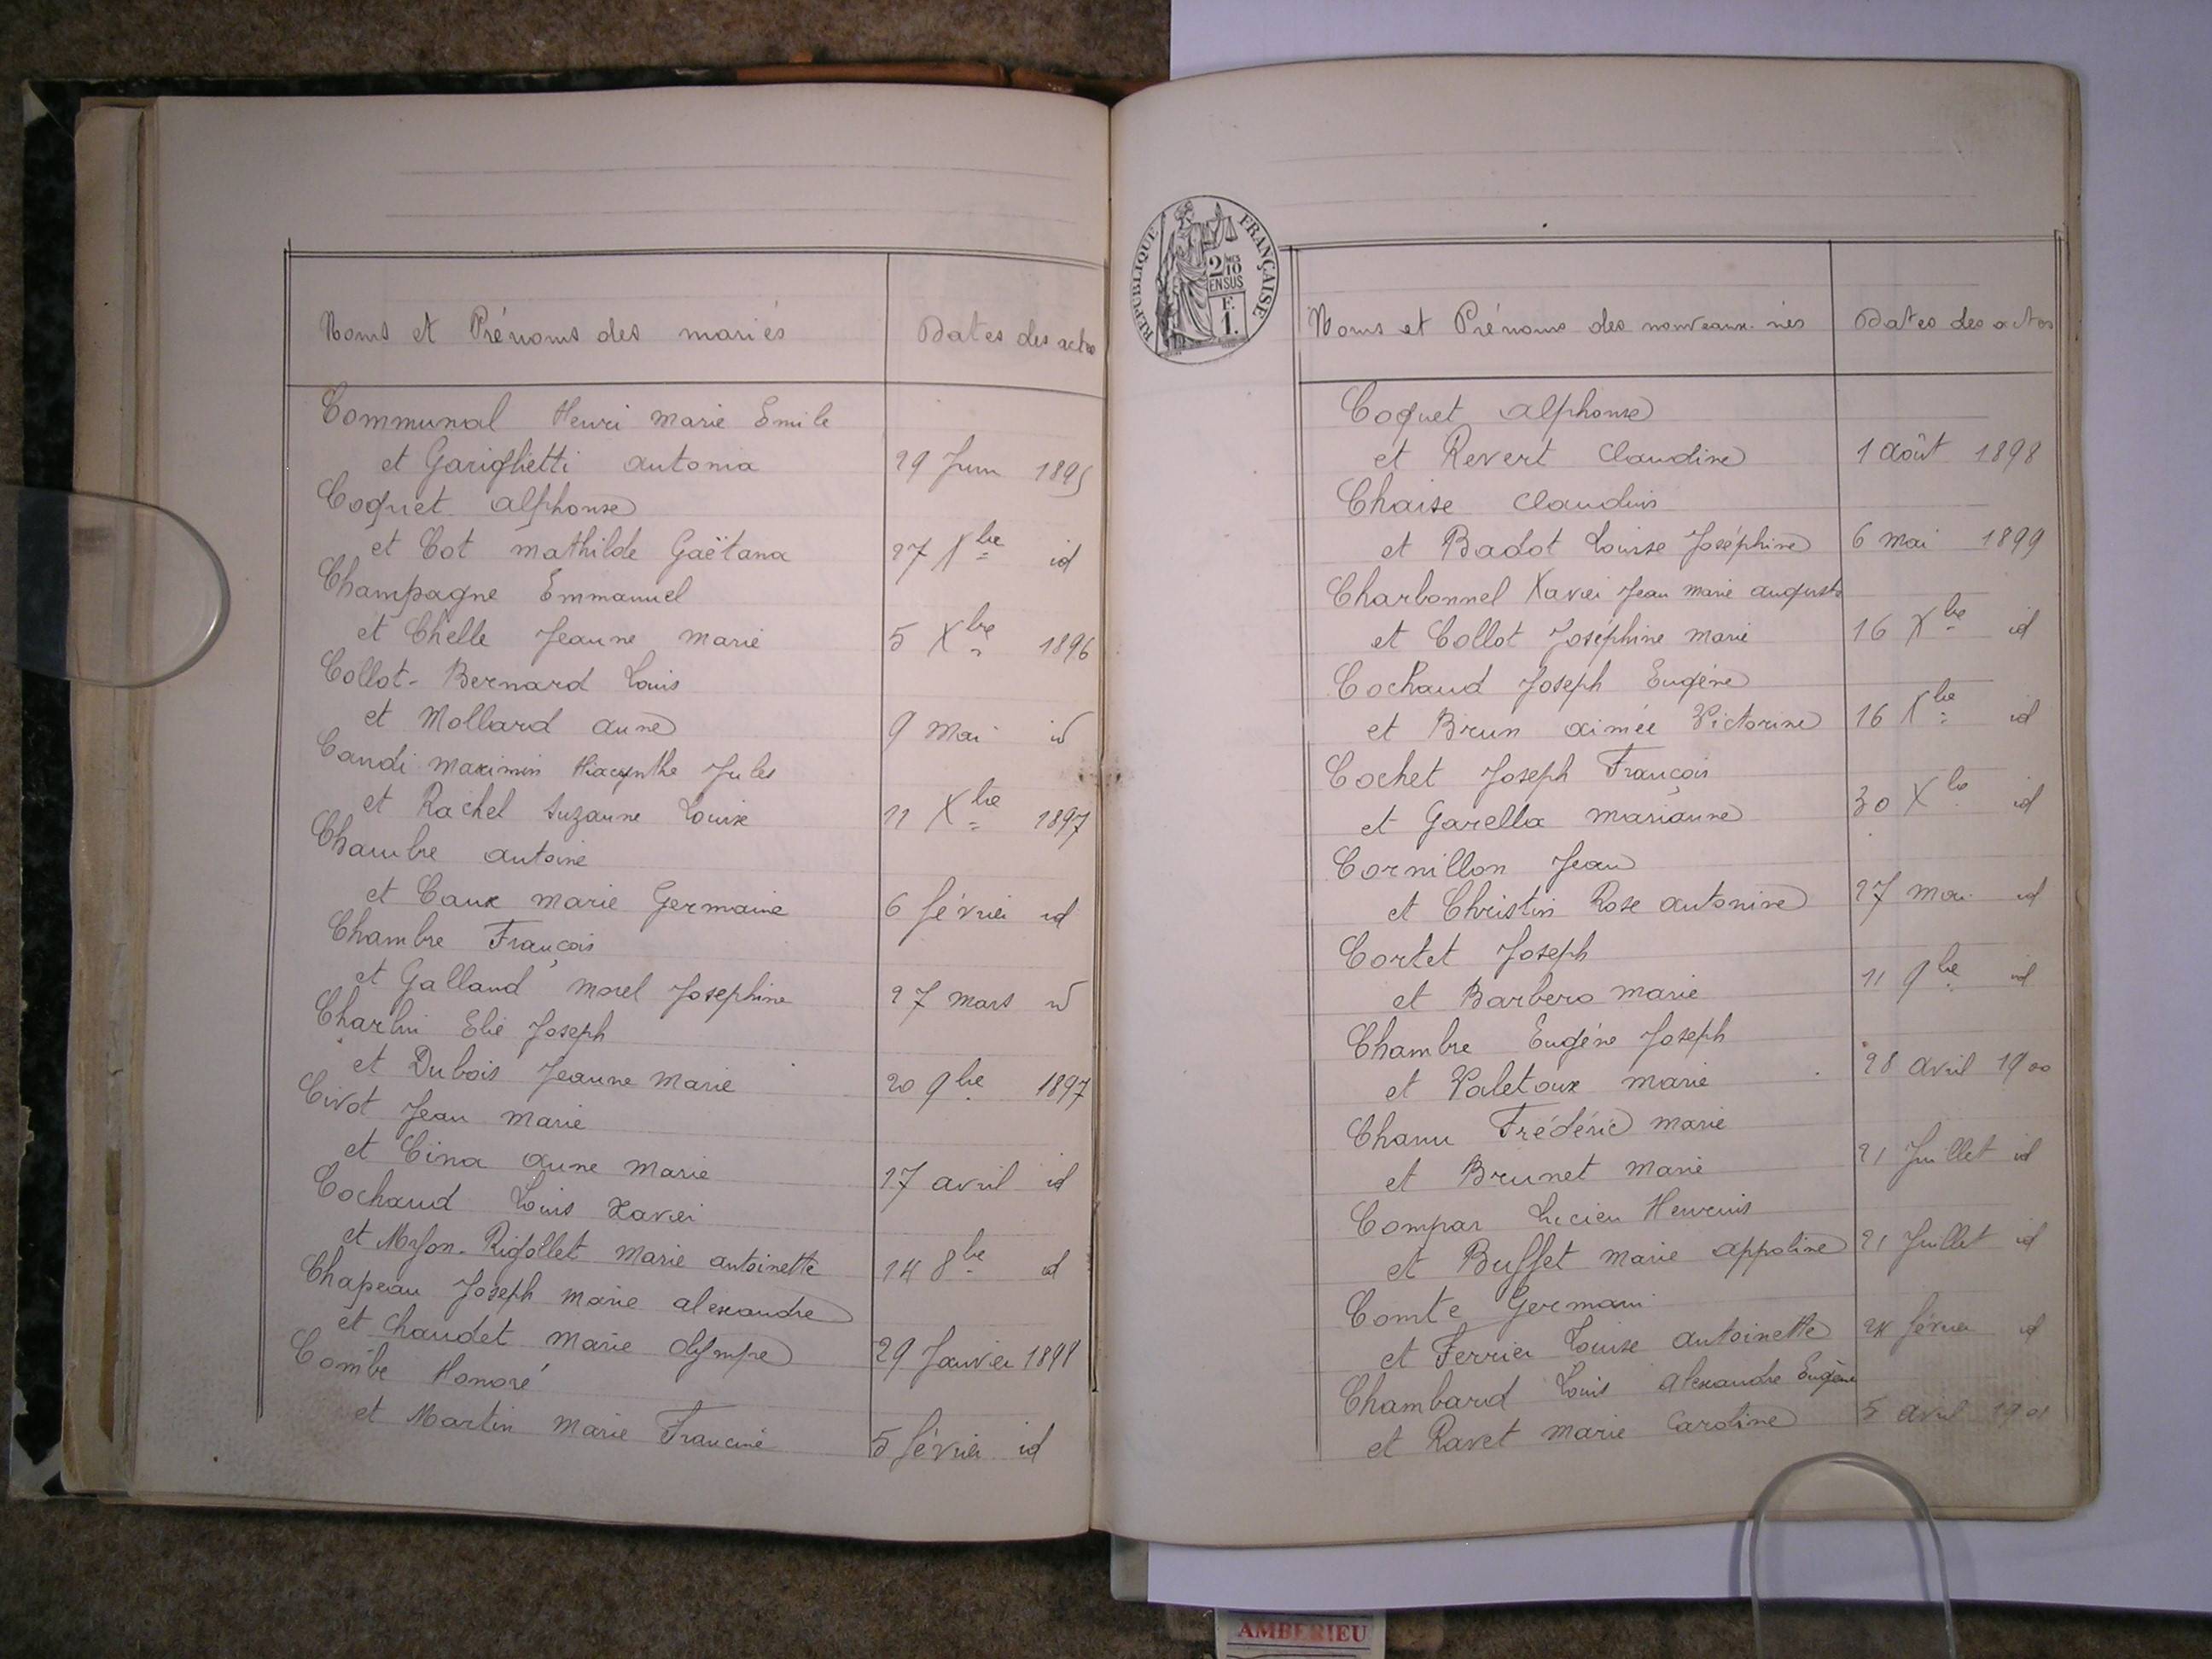 Noms et Prénoms des mariés
Dates des actes
Communal Henri Marie Emile
et Garighetti Antonia 29 Juin 1895
Coquet Alphonse
et Cot Mathilde Gaëtana 27 Xbre id
Champagne Emmanuel
et Chelle Jeanne Marie 5 Xbre 1896
Collot-Bernard Louis
et Mollard Anne 9 Mai id
Candi Maximin Hiacynthe Jules
et Rachel Suzanne Louise 11 Xbre 1897
Chambre Antoine
et Caux Marie Germaine 6 février id
Chambre François
et Galland Morel Josephine 27 mars id
Charlin Elie Joseph
et Dubois Jeanne Marie 20 9bre 1897
Civot Jean Marie
et Cina Anne Marie 17 avril id
Cochaud Louis Xavier
et Myon-Rigollet Marie Antoinette 14 8bre id
Chapeau Joseph Marie Alexandre
et Chaudet Marie Olympe 29 Janvier 1898
Combe Honoré
et Martin Marie Francine 5 février id
REPUBLIQUE FRANÇAISE
2 MES
10
EN SUS
F.
1.
Noms et Prénoms des nouveaux-nés
Dates des actes
Coquet Alphonse
et Revert Claudine 1 août 1898
Chaise Claudius
et Badot Louise Joséphine 6 mai 1899
Charbonnel Xavier Jean Marie Auguste
et Collot Joséphine Marie 16 Xbre id
Cochaud Joseph Eugène
et Brun Aimée Victorine 16 Xbre id
Cochet Joseph François
et Garella Marianne 30 Xbre id
Cornillon Jean
et Christin Rose Antonine 27 mai id
Cortet Joseph
et Barbero Marie 11 9bre id
Chambre Eugène Joseph
et Valetoux Marie 28 avril 1900
Chanu Frédéric Marie
et Brunet Marie 21 Juillet id
Compar Lucien
et Buffet Marie Appoline 21 Juillet id
Comte Germain
et Ferrier Louise Antoinette 24 février id
Chambard Louis Alexandre Eugène
et Ravet Marie Caroline 5 avril 1901
AMBERIEU